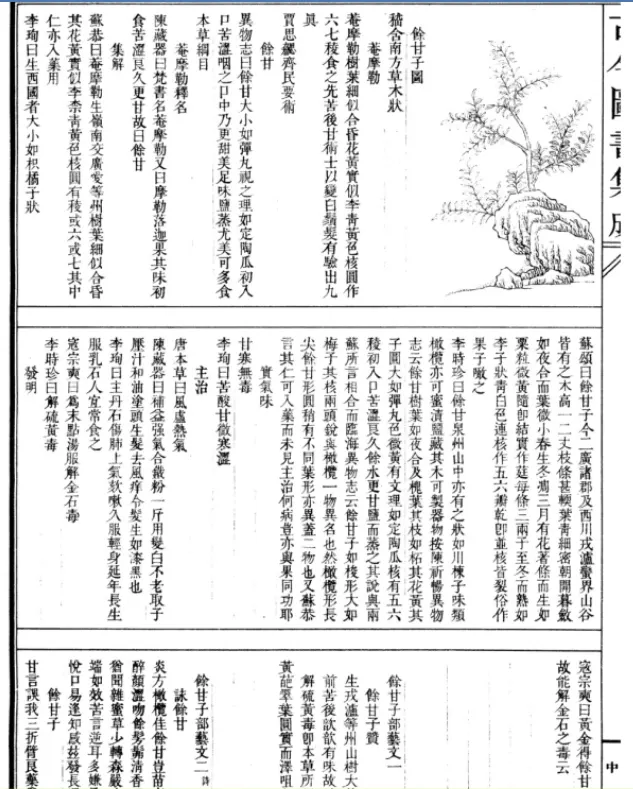 古今圖書集成
餘甘子圖
嵇含南方草木狀
菴摩勒
菴摩勒樹葉細似合昏花黃實似李青黃色核圓作
六七稜食之先苦後甘術士以變白鬚髮有驗出九
真
賈思勰齊民要術
餘甘
異物志曰餘甘大小如彈丸視之理如定陶瓜初入
口苦澀咽之口中乃更甜美足味鹽蒸尤美可多食
本草綱目
菴摩勒釋名
陳藏器曰梵書名菴摩勒又曰摩勒落迦果其味初
食苦澀良久更甘故曰餘甘
集解
蘇恭曰菴摩勒生嶺南交廣愛等州樹葉細似合昏
其花黃實似李柰青黃色核圓有稜或六或七其中
仁亦入藥用
李珣曰生西國者大小如枳橘子狀
蘇頌曰餘甘子今二廣諸郡及西川戎瀘蠻界山谷
皆有之木高一二丈枝條甚軟葉青細密朝開暮斂
如夜合而葉微小春生冬凋三月有花著條而生如
粟粒微黃隨卽結實作莛每條三兩子至冬而熟如
李子狀青白色連核作五六瓣乾卽並核皆裂俗作
果子噉之
李時珍曰餘甘泉州山中亦有之狀如川楝子味類
橄欖亦可蜜漬鹽藏其木可製器物按陳祈暢異物
志云餘甘樹葉如夜合及槐葉其枝如柘其花黃其
子圓大如彈丸色微黃有文理如定陶瓜核有五六
稜初入口苦澀良久飲水更甘鹽而蒸之其說與兩
蘇所言相合而臨海異物志云餘甘子如梭形大如
梅子其核兩頭銳與橄欖一物異名也然橄欖形長
尖餘甘形圓稍有不同葉形亦異蓋二物也又蘇恭
言其仁可入藥而未見主治何病豈亦與果同功耶
實氣味
甘寒無毒
李珣曰苦酸甘微寒澀
主治
唐本草曰風虛熱氣
陳藏器曰補益強氣合鐵粉一斤用變白不老取子
壓汁和油塗頭生髮去風痒令髮生如漆黑也
李珣曰主丹石傷肺上氣欬嗽久服輕身延年長生
服乳石人宜常食之
寇宗奭曰爲末點湯服解金石毒
李時珍曰解硫黃毒
發明
寇宗奭曰黃金得餘甘
故能解金石之毒云
餘甘子部藝文一
餘甘子贊
生戎瀘等州山樹大
前苦後歆歆有味故
解硫黃毒卽本草所
黃葩翠葉圓實而澤咀
餘甘子部藝文二 詩
詠餘甘
炎方橄欖佳餘甘豈苗
醉顏澀吻餘髣髴清香
猶聞雜蜜草少轉森嚴
端如效苦言逆耳多嫌
悅口易逢知戚茲發長
餘甘子
甘言誤我三折臂良藥
中